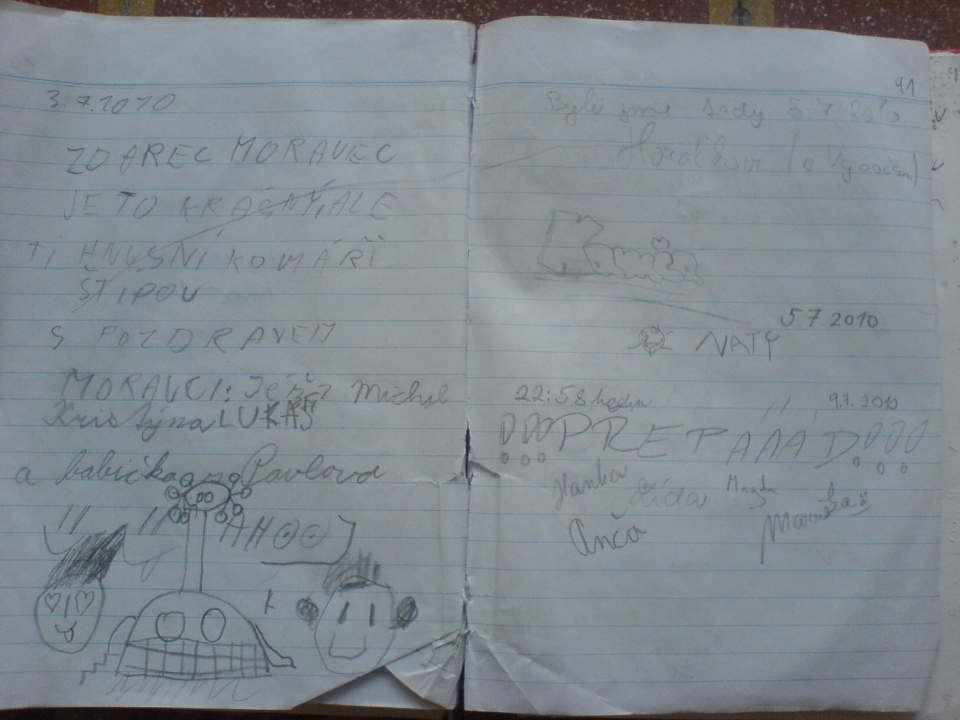 3.7.2010
ZDAREC MORAVEC
JE TO KRÁSNÝ, ALE
TI HNUSNÍ KOMÁŘI
ŠTÍPOU
S POZDRAVEM
MORAVCI: Michal
Kristýna LUKÁŠ
a babička Pavlova
AHOJ
91
Byli jsme tady 5.7 2010
5.7 2010
NATY
22:58 hodin
9.7. 2010
PRETAAAD
Hanka Lída Magda
Anča